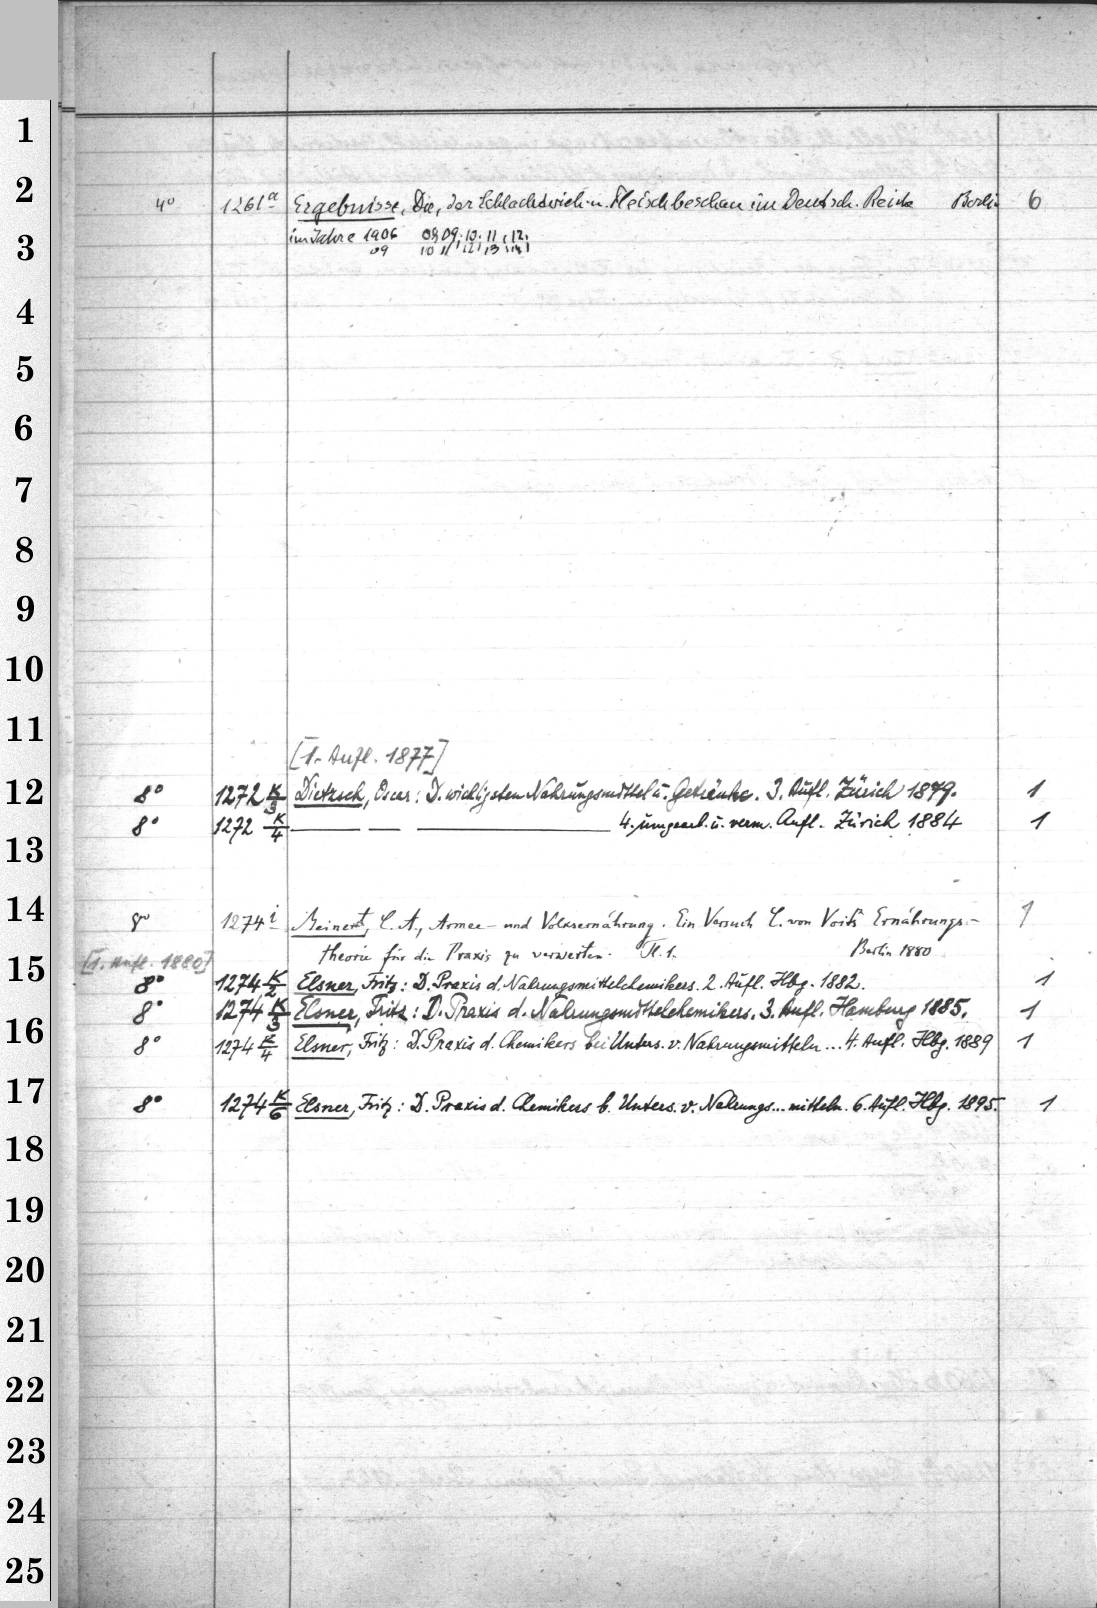 1
2
4° 1261a Ergebnisse, Die, der Schlachtvieh- u. Fleischbeschau im Deutsch. Reiche Berlin 6
im Jahre 1906 08, 09, 10, 11, 12,
09 10 11 12 13 14
3
4
5
6
7
8
9
10
11
[1. Aufl. 1877]
12
8° 1272 K/3 Dietzsch, Oscar: D. wichtigsten Nahrungsmittel u. Getränke. 3. Aufl. Zürich 1879. 1
8° 1272 K/4 ——— — ——— 4. umgearb. u. verm. Aufl. Zürich 1884 1
13
14
8° 1274 i Meinert, C. A., Armee- und Volksernährung. Ein Versuch C. von Voits Ernährungs- 1
theorie für die Praxis zu verwerten. Tl. 1. Berlin 1880
[1. Aufl. 1880]
15
8° 1274 K/2 Elsner, Fritz: D. Praxis d. Nahrungsmittelchemikers. 2. Aufl. Hbg. 1882. 1
8° 1274 K/3 Elsner, Fritz: D. Praxis d. Nahrungsmittelchemikers. 3. Aufl. Hamburg 1885. 1
16
8° 1274 K/4 Elsner, Fritz: D. Praxis d. Chemikers bei Unters. v. Nahrungsmitteln ... 4. Aufl. Hbg. 1889 1
17
8° 1274 K/6 Elsner, Fritz: D. Praxis d. Chemikers b. Unters. v. Nahrungs... mitteln. 6. Aufl. Hbg. 1895. 1
18
19
20
21
22
23
24
25